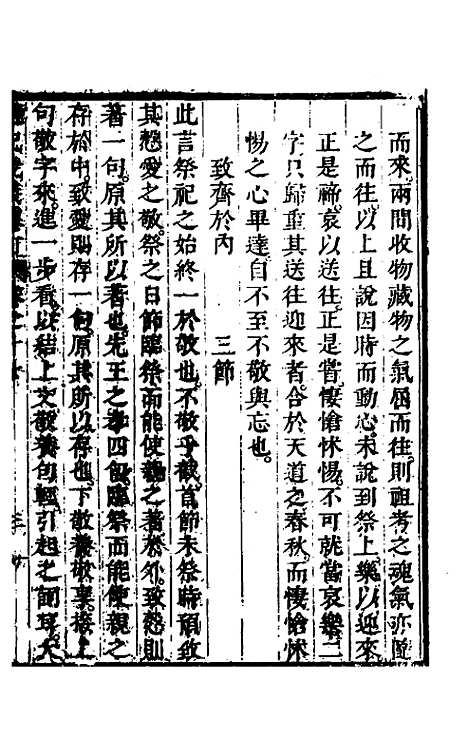 而來兩間收物藏物之氣屈而往則祖考之魂氣亦隨
之而往以上且說因時而動心未說到祭上樂以迎來
正是禘哀以送往正是嘗悽愴怵惕不可就當哀樂二
字只歸重其送往迎來者合於天道之春秋而悽愴怵
惕之心畢達自不至不敬與忘也
致齊於內　三節
此言祭祀之始終一於敬也不敬乎哉首節未祭時預致
其慤愛之敬祭之日節臨祭而能使親之著於外致慤則
著一句原其所以著也先王之孝四句臨祭而能使親之
存於中致愛則存一句原其所以存也下敬養敬享接上
句敬字來進一步看以結上文敬養句輕引起之詞耳夫